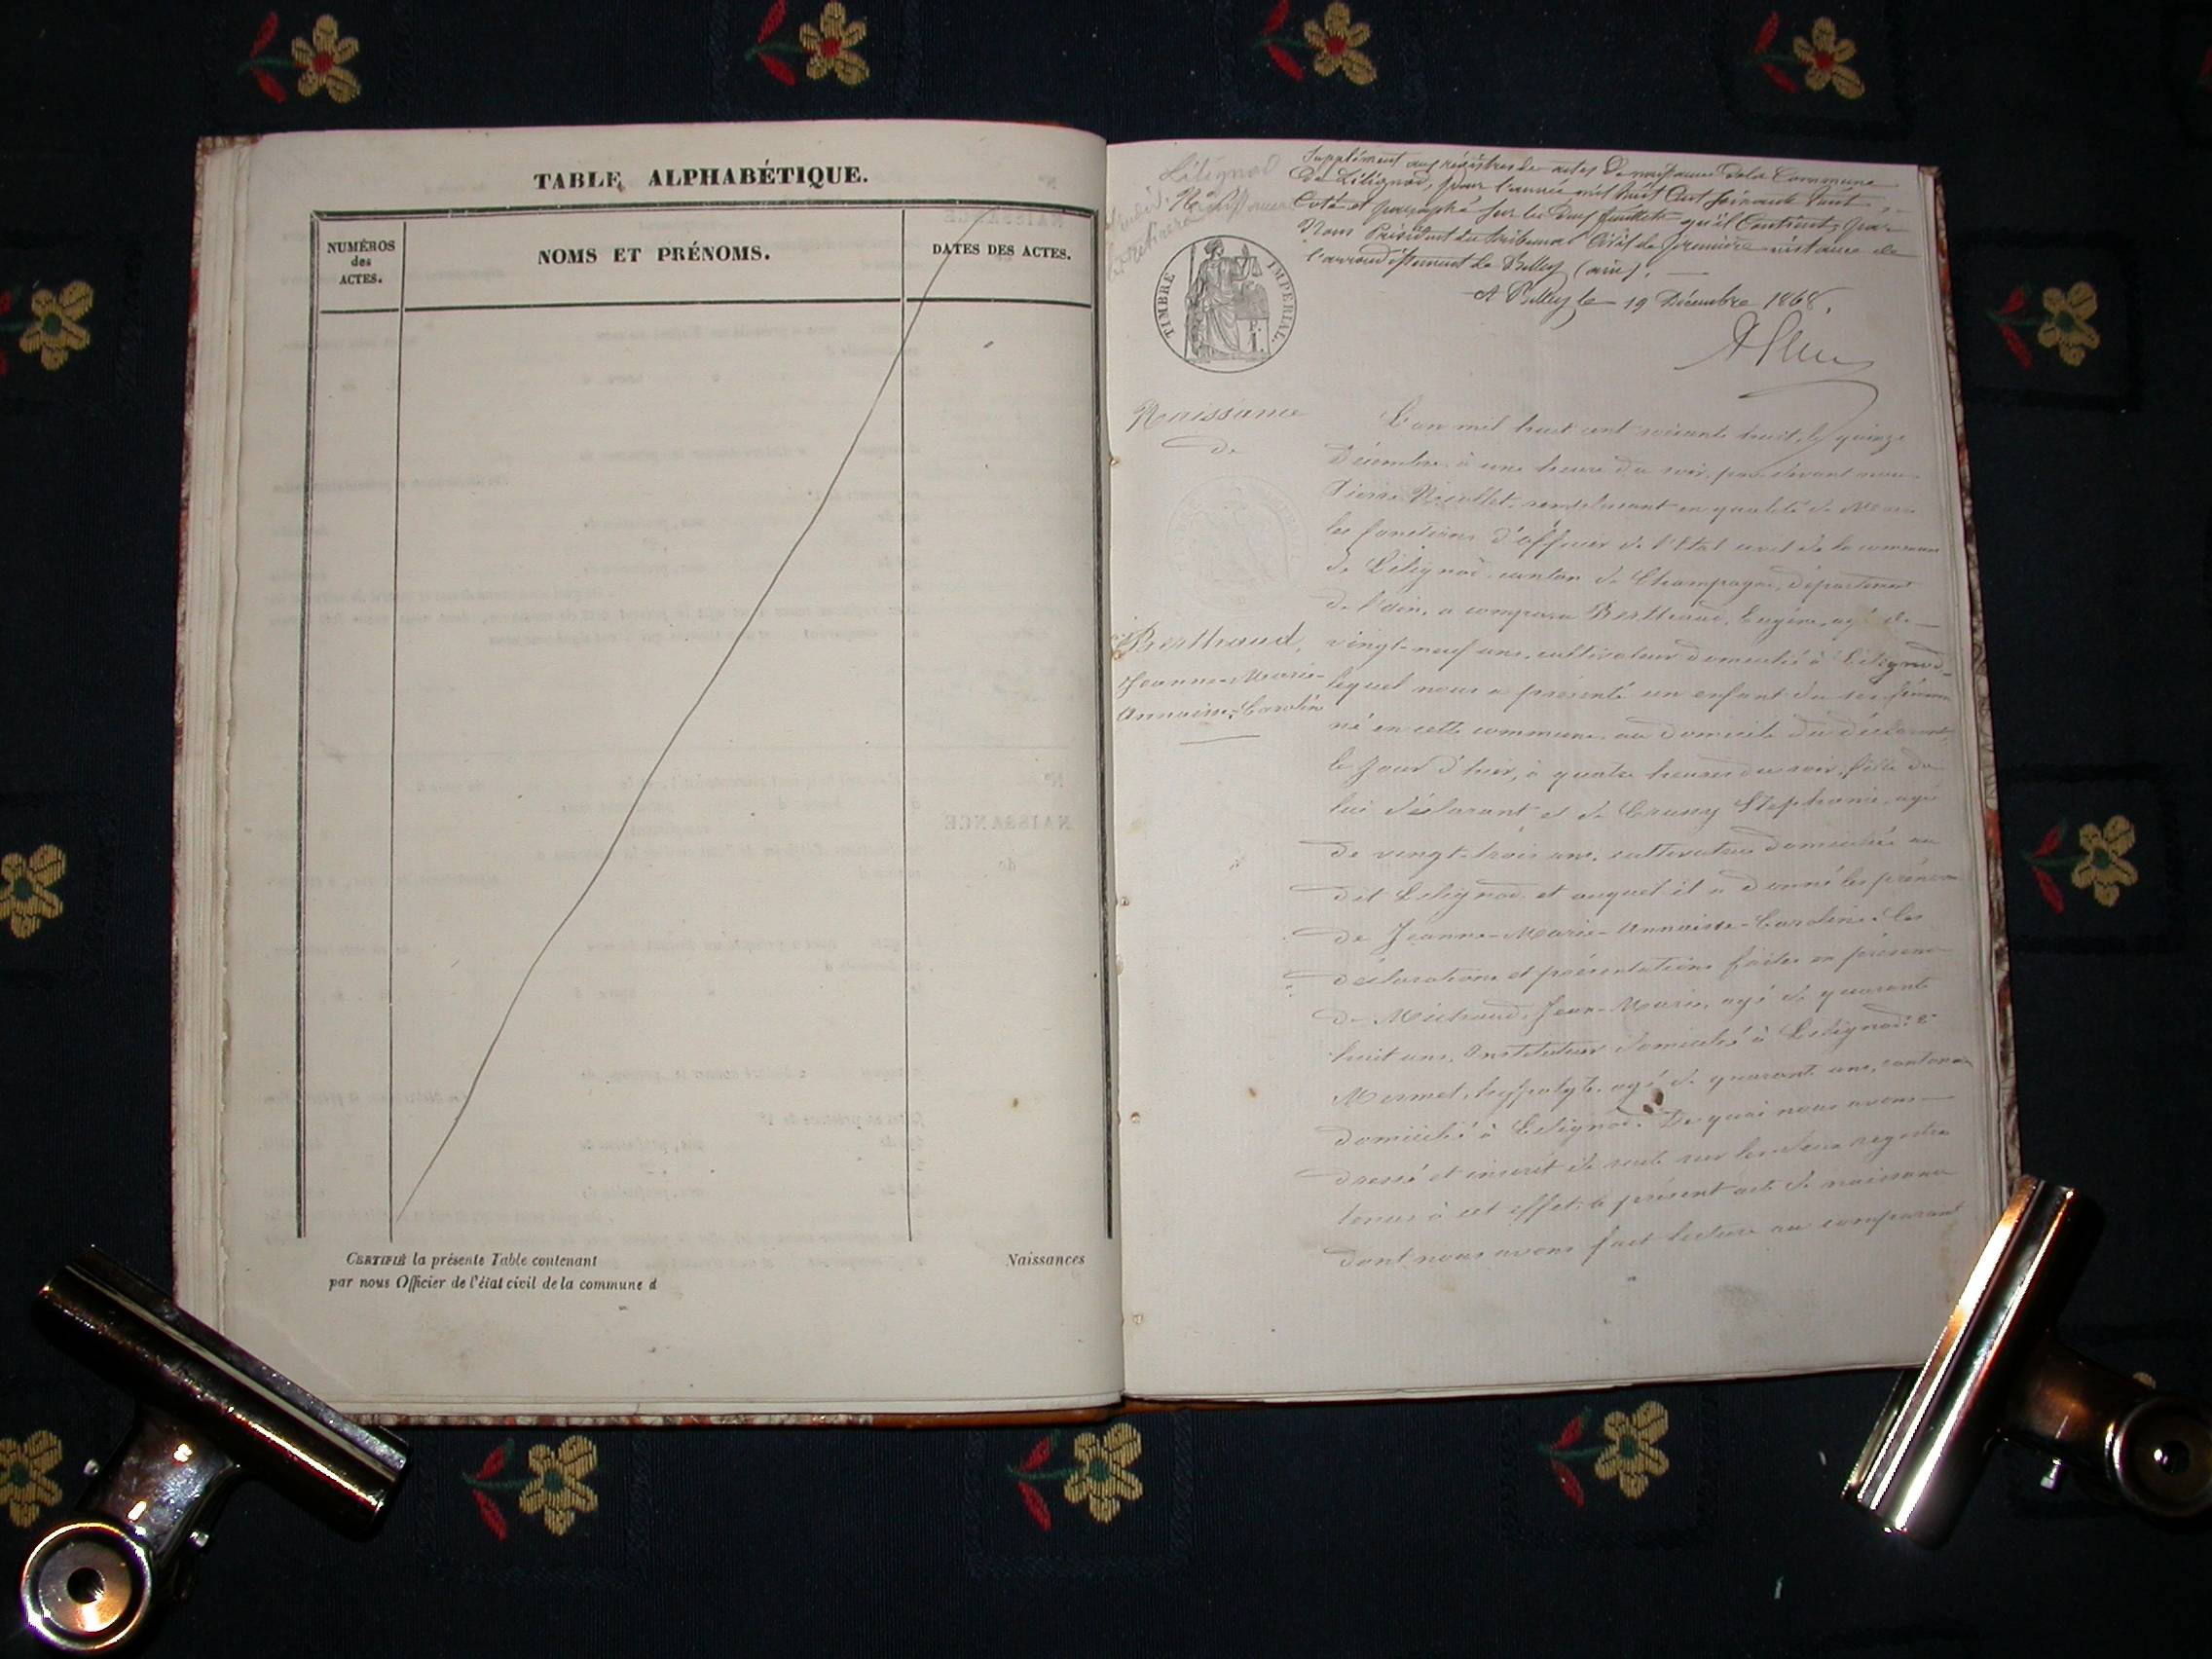 TABLE ALPHABÉTIQUE.
NUMÉROS
des
ACTES.
NOMS ET PRÉNOMS.
DATES DES ACTES.
CERTIFIÉ la présente Table contenant
Naissances
par nous Officier de l'état civil de la commune d
Lilignod
Supplément aux registres de actes de naissance de la Commune
de Lilignod, pour l'année mil huit cent soixante huit,
Coté et paraphé sur les deux feuillets qu'il contient, par
Nous Président du tribunal Civil de première instance de
l'arrondissement de Belley (ain).
A Belley le 19 Décembre 1868.
TIMBRE IMPERIAL.
Naissance
de
Berthaud,
Jeanne-Marie-
Annaisse-Caroline
L'an mil huit cent soixante huit, le quinze
Décembre, à une heure du soir, par devant nous
Pierre remplissant en qualité de Maire
les fonctions d'officier de l'Etat civil de la commune
de Lilignod, canton de Champagne, département
de l'Ain, a comparu Berthaud, Eugène, agé de
vingt-neuf ans, cultivateur domicilié à Lilignod,
lequel nous a présenté un enfant du sexe féminin
né en cette commune, au domicile du déclarant,
le jour d'hier, à quatre heures du soir, fille de
lui déclarant et de Stephanie, agée
de vingt-trois ans, cultivatrice domiciliée au
dit Lilignod et auquel il a donné les prénoms
de Jeanne-Marie-Annaisse-Caroline: les
déclaration et présentation faites en présence
de Michaud, Jean-Marie, agé de quarante
huit ans, Instituteur domicilié à Lilignod: &
Mermet, hyppolyte, agé de quarante ans,
domicilié à Lilignod. De quoi nous avons
dressé et inscrit de suite sur les deux registres
tenus à cet effet, le présent acte de naissance
dont nous avons fait lecture au comparant